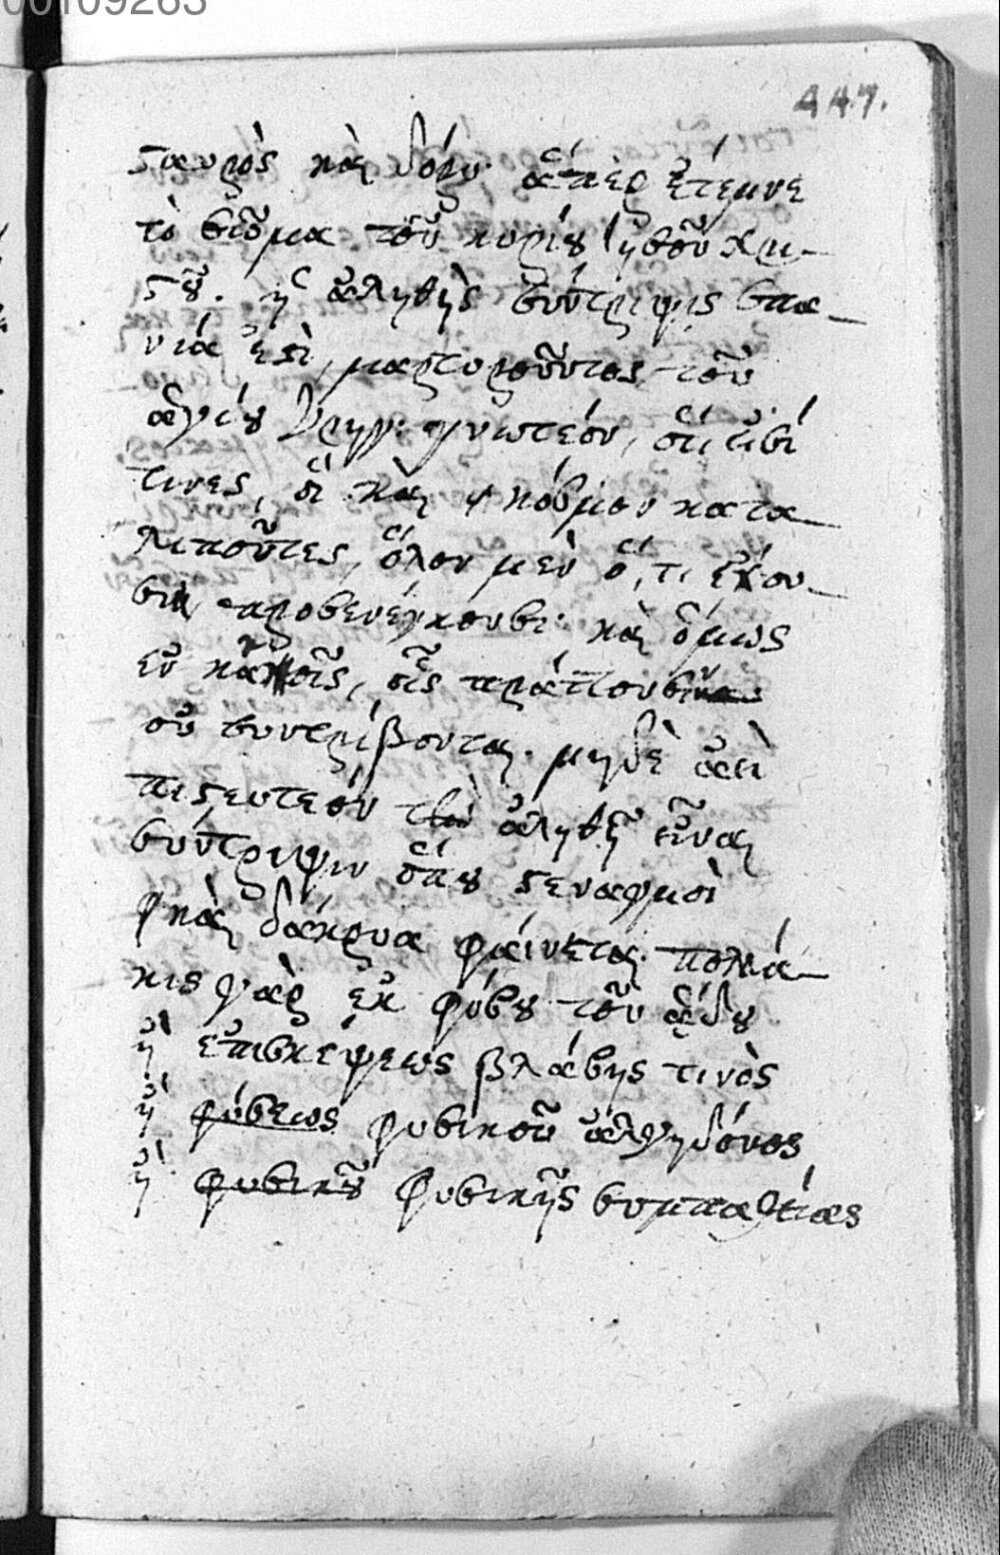 00109263
447.
σταυρὸς καὶ δόρυ ἅπερ ἔτεμνε
τὸ σῶμα τοῦ κυρίου Ἰησοῦ Χρι-
στοῦ. ἡ ἀληθὴς σύντριψις σπα-
νιά ἐστι, μαρτυροῦντος τοῦ
ἁγίου Γρηγ. γνωστέον, ὅτι εἰσί
τινες, οἳ καὶ κόσμον κατα-
λιπόντες, ὅλον μὲν ὅ, τι ἔχου-
σιν προσενέγκουσι καὶ ὅμως
ἐν κακοῖς, οἷς πράττουσιν
οὐ συντρίβονται. μηδὲ ἀεὶ
πιστευτέον τὴν ἀληθῆ εἶναι
σύντριψιν ὅπου στεναγμοὶ
καὶ δάκρυα φαίνεται πολλά-
κις γὰρ ἐκ φόβου τοῦ ᾅδου
ἢ ἐπισκέψεως βλάβης τινὸς
ἢ φύσεως φυσικοῦ ἀλγηδόνος
ἢ φυσικοῦ φυσικῆς συμπαθείας